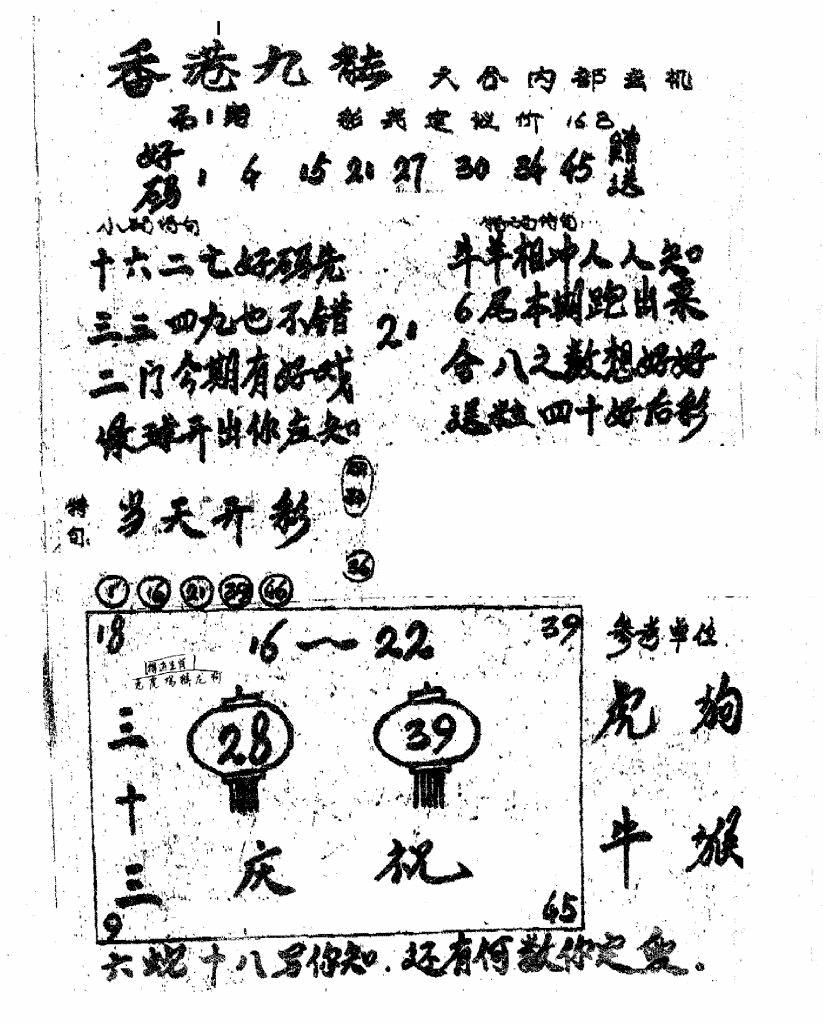 香港九龙 六合内部玄机
第1期 彩民建议价168
好码 1 4 15 21 27 30 34 45 赠送
特码诗句
十六二七好码先
三三四九也不错
二门今期有好戏
你开出你应知
21
牛羊相冲人人知
6尾本期跑出来
合八之数想好好
送数四十好后彩
特句: 当天开彩
30
36
1 16 21 39 46
18 16～22 39
三十三
28 39
庆祝
9 45
参考单位
虎 狗
牛 猴
六蛇十八写你知.还有何数你定夺.